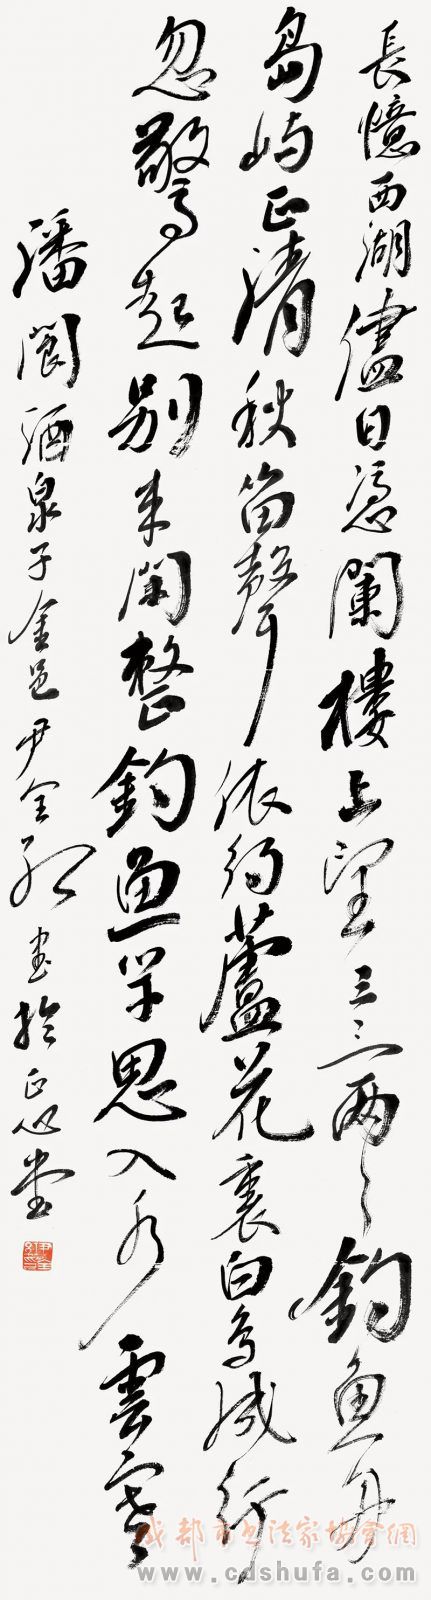 長憶西湖儘日憑闌樓上望三三两々釣魚舟
島嶼正清秋笛聲依約蘆花裏白鳥成行
忽驚起別来閑整釣魚竿思入水雲寒
潘閬酒泉子金邑尹全書於正心堂
成都市书法家協會網
www.cdshufa.com